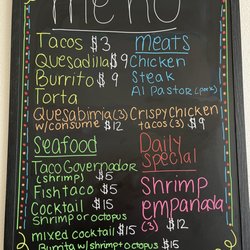 menu
Tacos $3
Quesadilla $9
Burrito $9
Torta
Meats
Chicken
Steak
Al Pastor (pork)
Quesabirria (3)
w/consume $12
Crispy chicken
tacos (3) $9
Seafood
Taco Governador
(shrimp) $5
Fish taco $5
Cocktail $15
shrimp or octopus
mixed cocktail $15
Burrito w/shrimp or octopus $15
Daily
Special
Shrimp
empanada
(3) $12